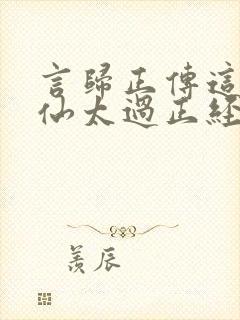 言歸正傳這
仙太過正經
羨辰